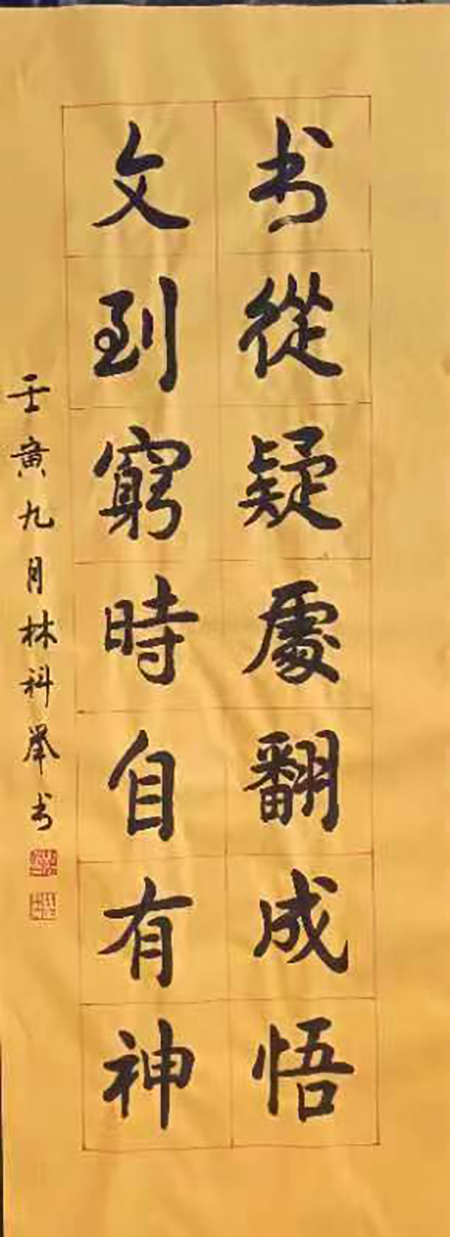 书從疑處翻成悟
文到窮時自有神
壬寅九月林科举书